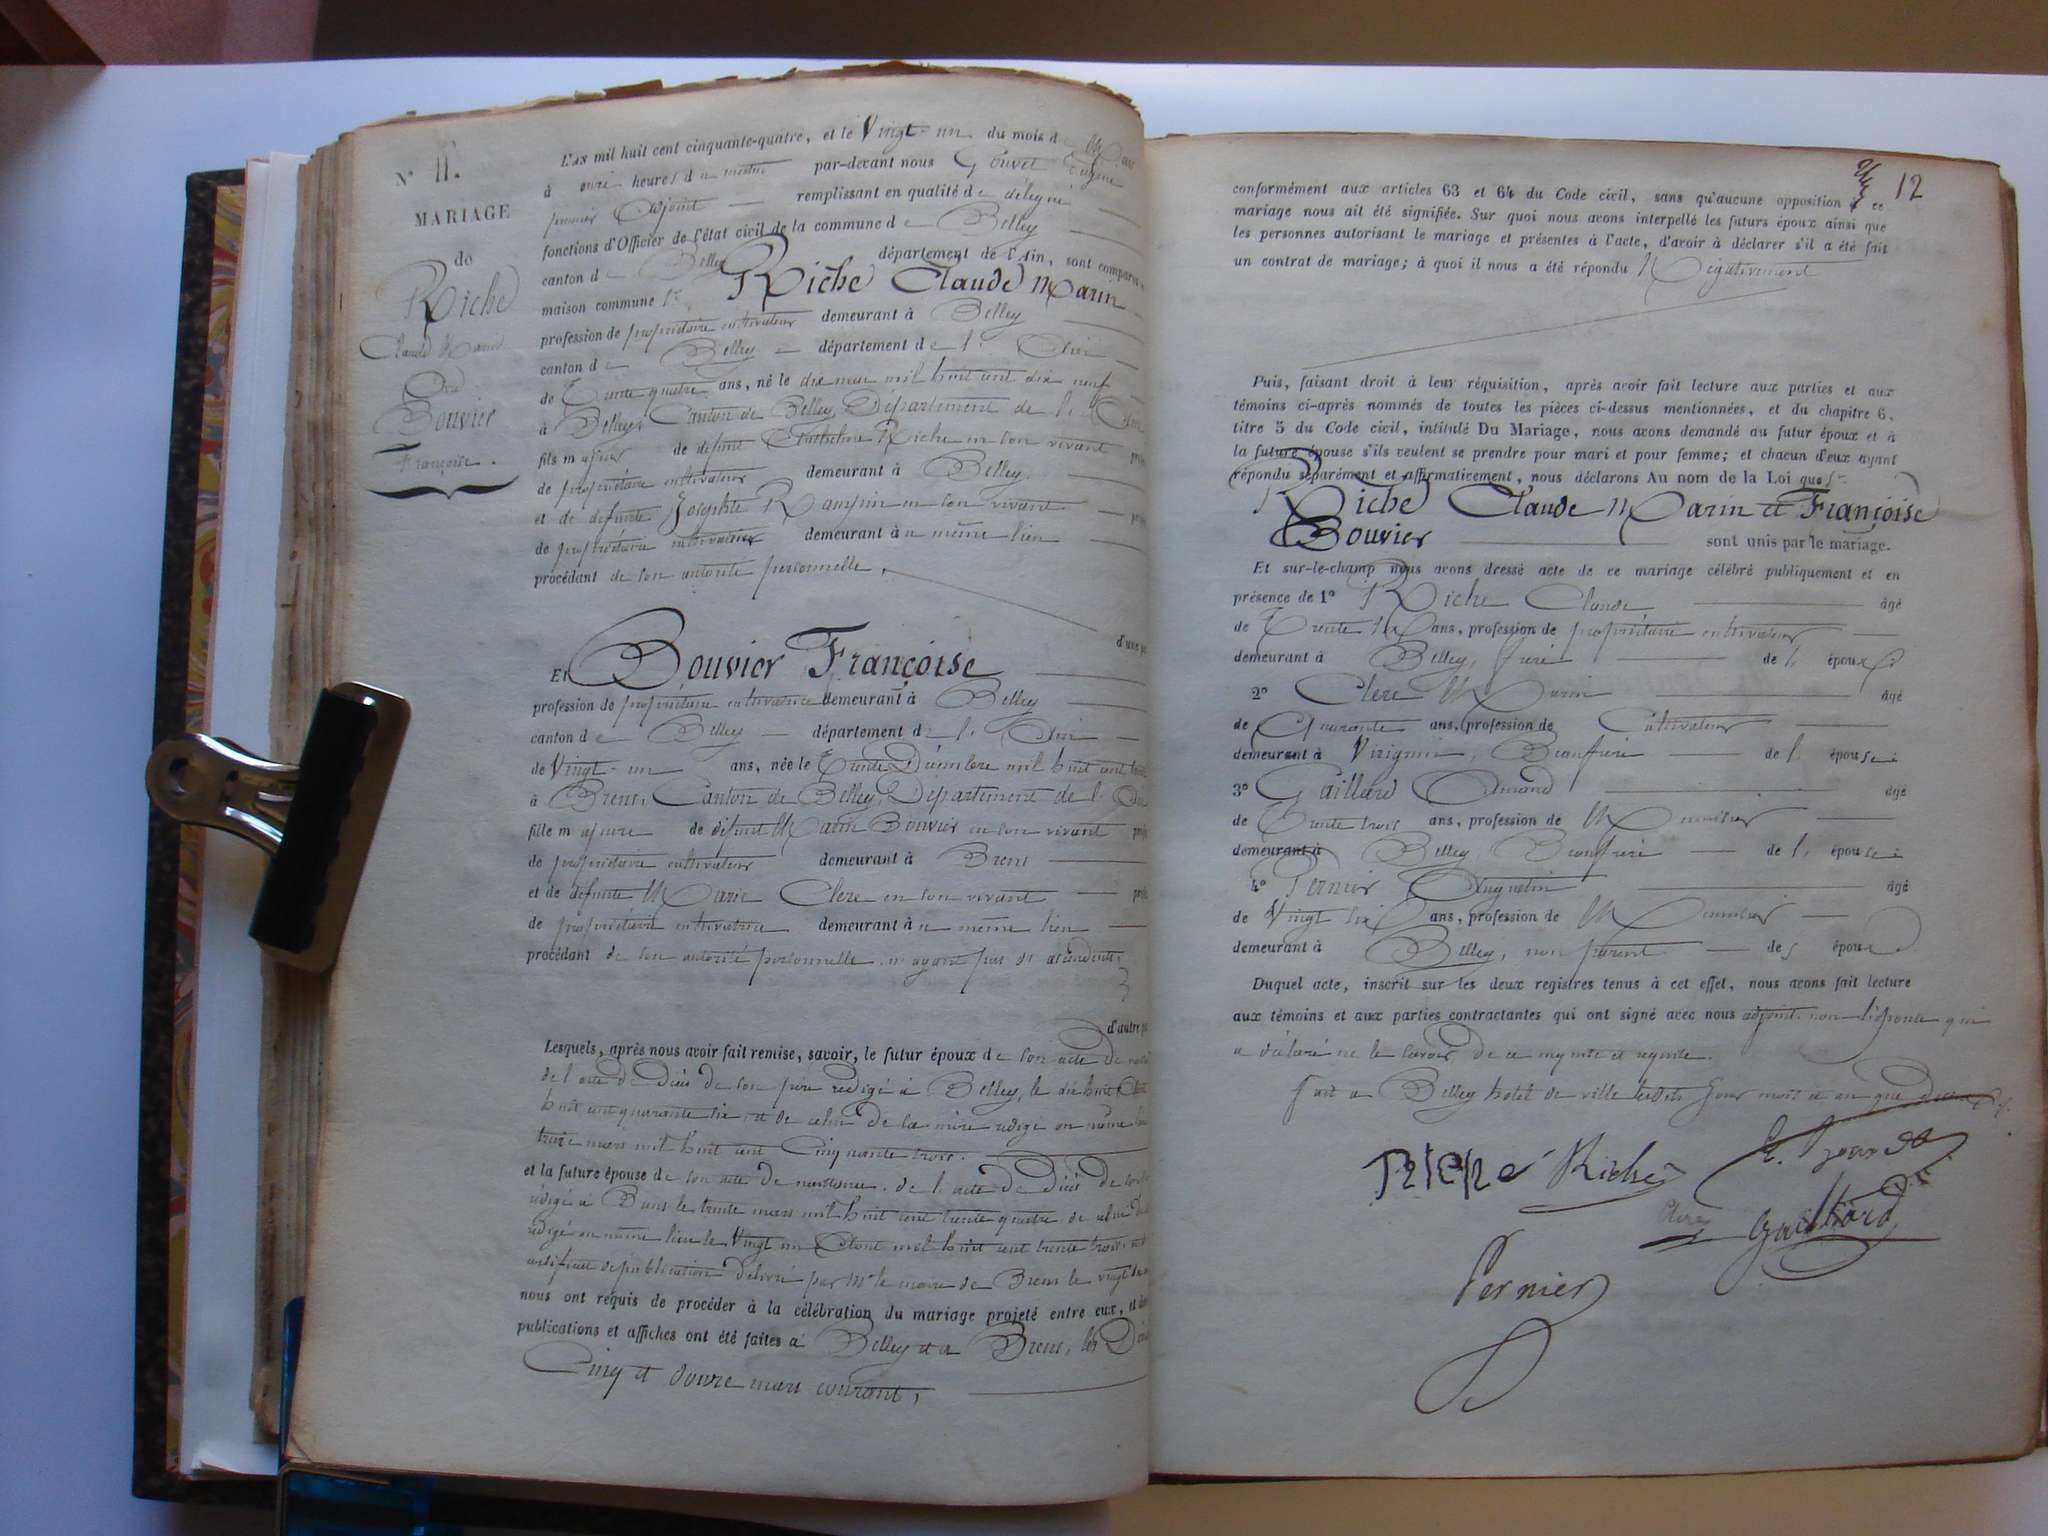 N° 11.
MARIAGE
de
Riche
Claude Marin
Et
Bouvier
Françoise.
L'an mil huit cent cinquante-quatre, et le Vingt-un du mois de Mars
à onze heures du matin par-devant nous Gouvet Eugène
premier Adjoint remplissant en qualité de délégué
fonctions d'Officier de l'état civil de la commune de Belley
canton de Belley département de l'Ain, sont comparus
maison commune Sr Riche Claude Marin
profession de propriétaire cultivateur demeurant à Belley
canton de Belley département de l'Ain
de Trente quatre ans, né le dix mil huit cent dix neuf
à Belley, Canton de Belley, Département de l'Ain
fils majeur de défunt Anthelme Riche en son vivant
de propriétaire cultivateur demeurant à Belley.
et de défunte Josephte en son vivant
de propriétaire cultivateur demeurant au même lieu
procédant de son autorité personnelle,
d'une
Et Bouvier Françoise
profession de propriétaire cultivatrice demeurant à Belley
canton de Belley département de l'Ain
de Vingt-un ans, née le Trente Décembre mil huit cent
à Brens, Canton de Belley, Département de l'Ain
fille majeure de défunt Marin Bouvier en son vivant
de propriétaire cultivateur demeurant à Brens
et de défunte Marie Clerc en son vivant
de propriétaire cultivatrice demeurant au même lieu
procédant de son autorité personnelle n'ayant pas d'ascendants,
d'autre
Lesquels, après nous avoir fait remise, savoir, le futur époux de son acte de
de l'acte de Décès de son père redigé à Belley, le dix huit
huit cent quarante six, et de celui de la mère redigé au même
treize mars mil huit cent Cinquante trois.
et la future épouse de son acte de naissance, de l'acte de Décès de
redigé à Brens le trente mars mil huit cent trente quatre, de celui de
redigé au même lieu le Vingt un mil huit cent trente trois,
certificat de publication délivré par Mr le maire de Brens le vingt
nous ont requis de procéder à la célébration du mariage projeté entre eux, et
publications et affiches ont été faites à Belley et à Brens, les
Cinq et douze mars courant,
12
conformément aux articles 63 et 64 du Code civil, sans qu'aucune opposition à ce
mariage nous ait été signifiée. Sur quoi nous avons interpellé les futurs époux ainsi que
les personnes autorisant le mariage et présentes à l'acte, d'avoir à déclarer s'il a été fait
un contrat de mariage; à quoi il nous a été répondu Négativement
Puis, faisant droit à leur réquisition, après avoir fait lecture aux parties et aux
témoins ci-après nommés de toutes les pièces ci-dessus mentionnées, et du chapitre 6,
titre 5 du Code civil, intitulé Du Mariage, nous avons demandé au futur époux et à
la future épouse s'ils veulent se prendre pour mari et pour femme; et chacun d'eux ayant
répondu séparément et affirmativement, nous déclarons Au nom de la Loi que Sr
Riche Claude Marin et Françoise
Bouvier sont unis par le mariage.
Et sur-le-champ nous avons dressé acte de ce mariage célébré publiquement et en
présence de 1° Riche Claude âgé
de Trente six ans, profession de propriétaire cultivateur
demeurant à Belley, frère de l'époux
2° Clerc Marin âgé
de Quarante ans, profession de Cultivateur
demeurant à Virignin, Beaufrère de l'épouse
3° Gaillard Amand âgé
de Trente trois ans, profession de Menuisier
demeurant à Belley, Beaufrère de l'épouse
4° Pernier Augustin âgé
de Vingt six ans, profession de Menuisier
demeurant à Belley, non parent des époux
Duquel acte, inscrit sur les deux registres tenus à cet effet, nous avons fait lecture
aux témoins et aux parties contractantes qui ont signé avec nous adjoint, non l'épouse qui
a déclaré ne le savoir, de ce enquise et requise.
fait à Belley hotel de ville lesdits jour mois et an que dessus
Riche Riche E. Gouvet
Clerc Gaillard
Pernier